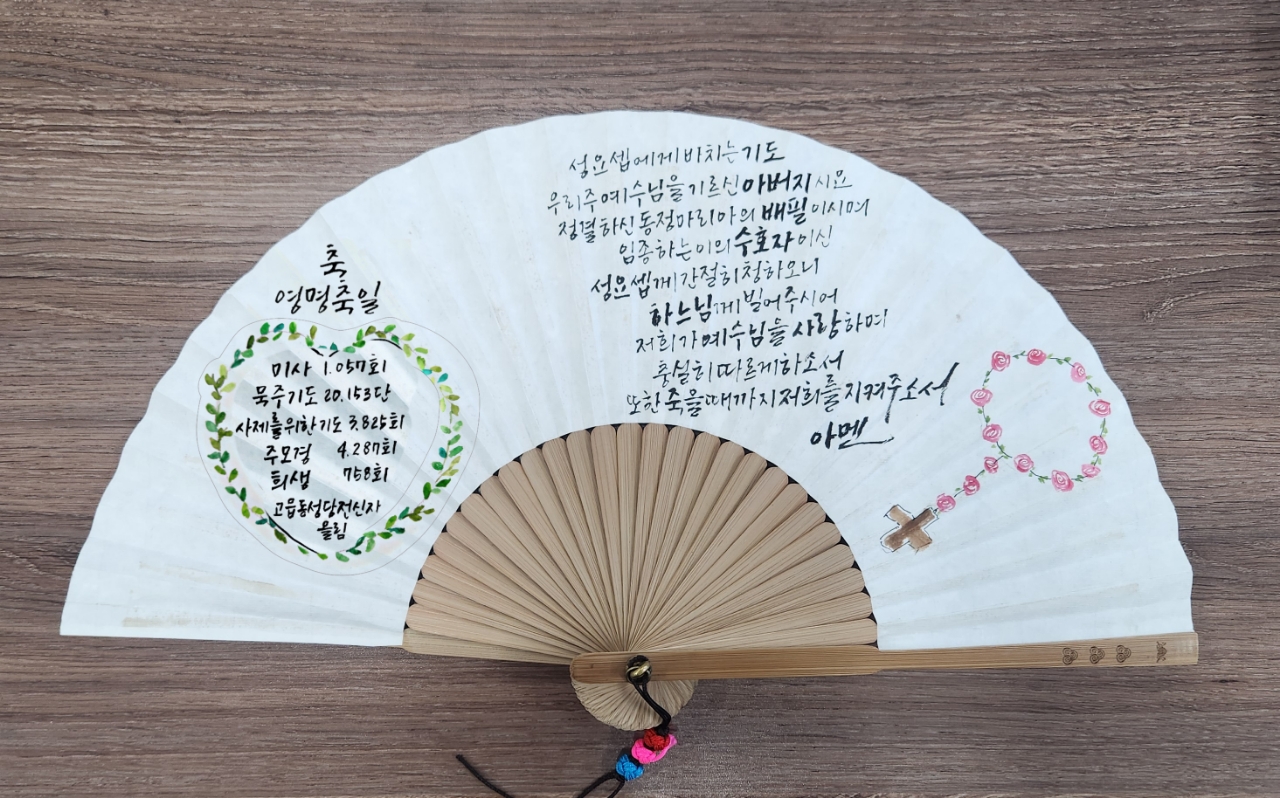 축
영명축일
미사 1.057회
묵주기도 20.153단
사제를위한기도 3.825회
주모경 4.287회
희생 758회
고읍동성당전신자
올림
성요셉에게 바치는 기도
우리 주 예수님을 기르신 아버지시요
정결하신 동정 마리아의 배필이시며
임종하는 이의 수호자이신
성요셉께 간절히 청하오니
하느님께 빌어주시어
저희가 예수님을 사랑하며
충실히 따르게 하소서
또한 죽을 때까지 저희를 지켜주소서
아멘